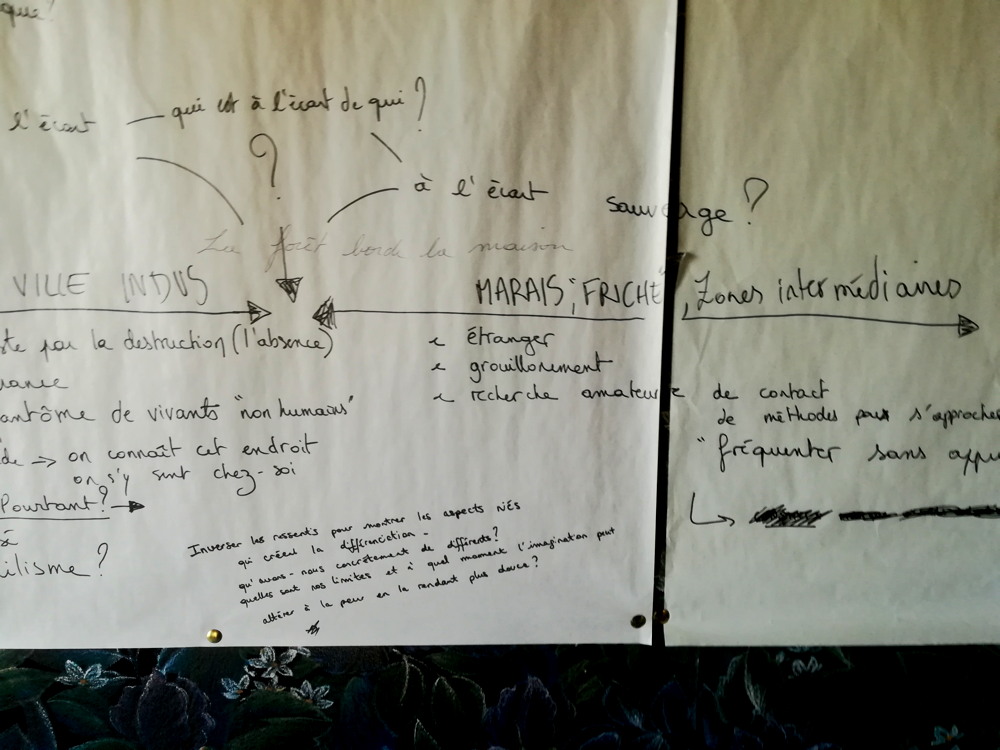 que!
l'écart
qui est à l'écart de qui ?
?
à l'écart
sauvage ?
La forêt borde la maison
VILLE INDUS
MARAIS, "FRICHE", Zones intermédiaires
ste par la destruction (l'absence)
antôme de vivants "non humains"
de → on connaît cet endroit
on s'y sent chez-soi
Pourtant ?
ilisme ?
étranger
grouillonement
recherche amateure de contact
de méthodes pour s'approcher
"fréquenter sans appr
Inverser les ressentis pour montrer les aspects NÉS
qui créent la différenciation -
qu'avons-nous concrètement de différents ?
quelles sont nos limites et à quel moment l'imagination peut
altérer à la peur en la rendant plus douce ?